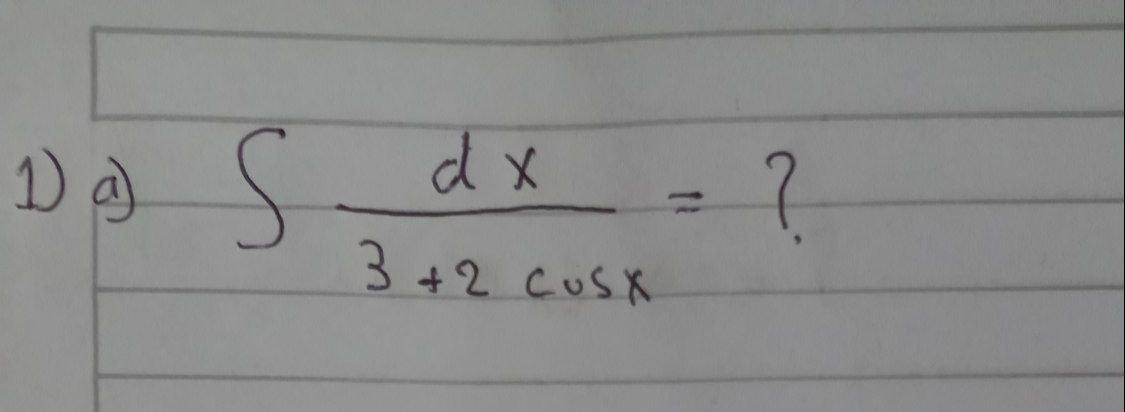 1) a) ∫ dx / (3 + 2 cosx) = ?